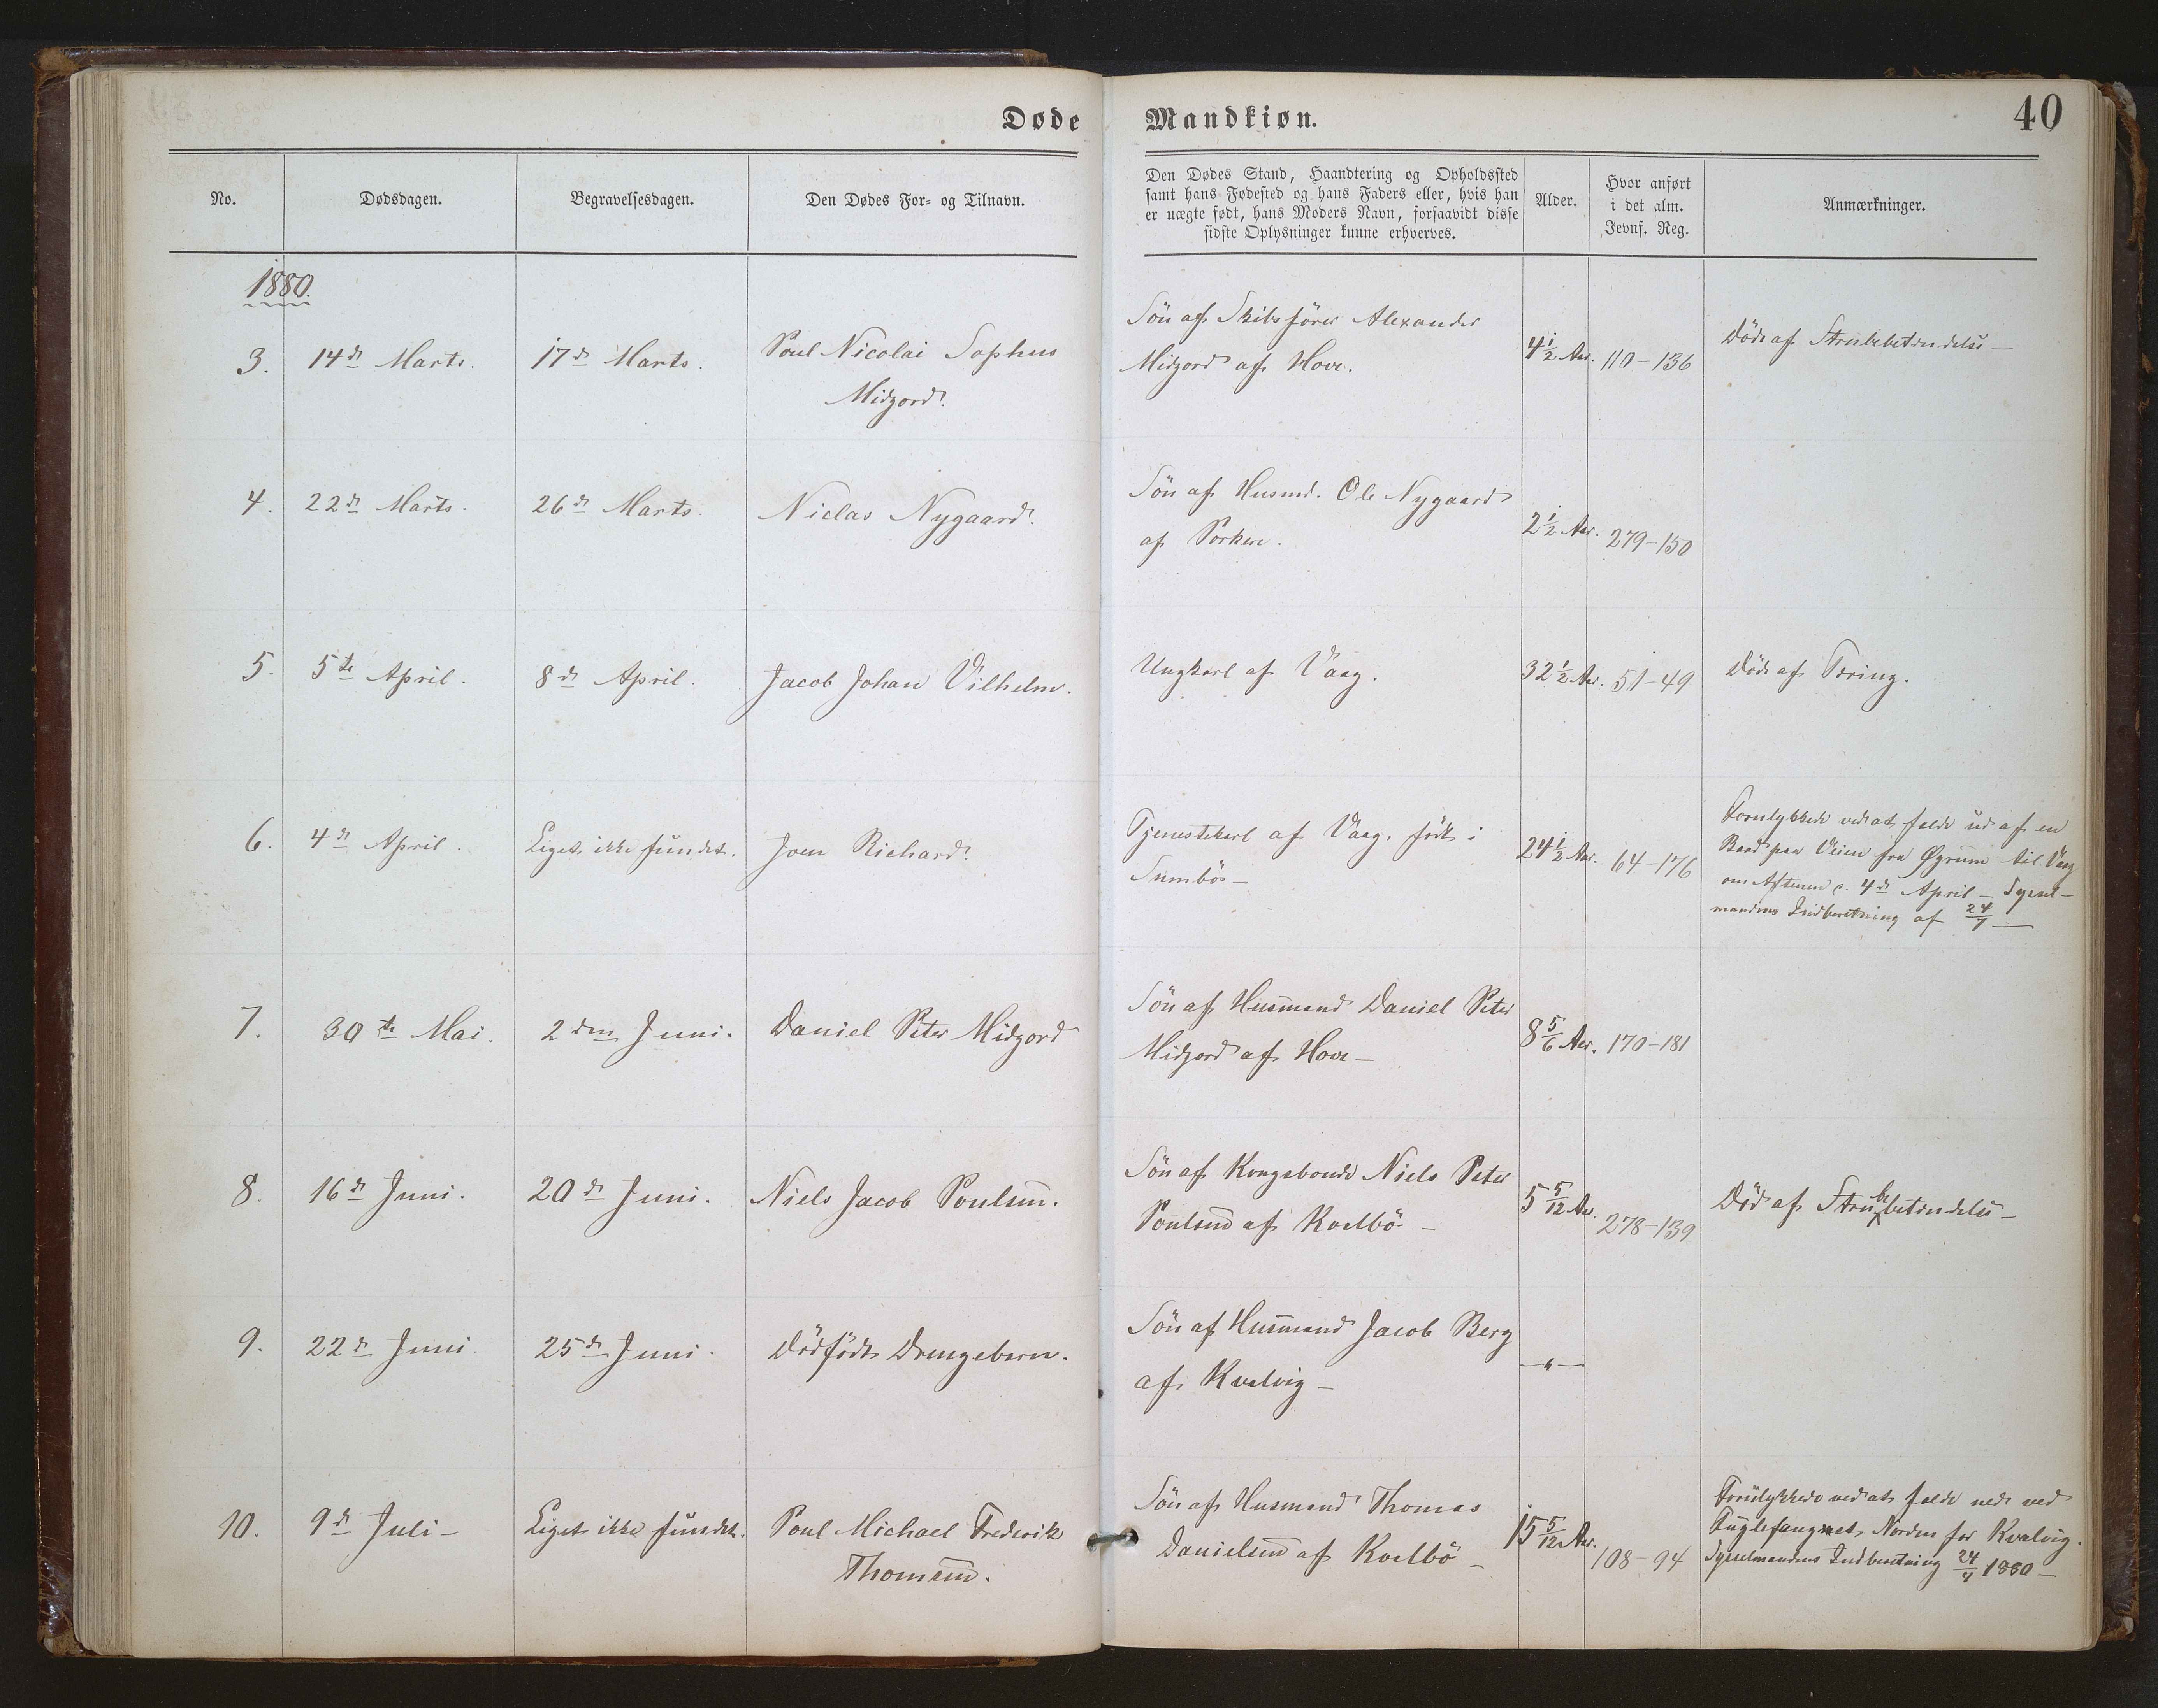 Døde Mandkiøn.
40
No.
Dødsdagen.
Begravelsesdagen.
Den Dødes For- og Tilnavn.
Den Dødes Stand, Haandtering og Opholdssted
samt hans Fødested og hans Faders eller, hvis han
er uægte født, hans Moders Navn, forsaavidt disse
sidste Oplysninger kunne erhverves.
Alder.
Hvor anført
i det alm.
Jevnf. Reg.
Anmærkninger.
1880.
3.
14de Marts.
17de Marts.
Poul Nicolai Sophus
Midjord.
Søn af Skibsfører Alexander
Midjord af Hove.
4 1/2 Aar.
110-136
Døde af Strubebetændelse -
4.
22de Marts.
26de Marts.
Niclas Nygaard.
Søn af Husmd. Ole Nygaard
af Porkere.
2 1/2 Aar.
279-150
5.
5te April.
8de April.
Jacob Johan Vilhelm.
Ungkarl af Vaag.
32 1/2 Aar.
51-49
Døde af Tæring.
6.
4de April.
Liget ikke fundet.
Joen Richard.
Tjenestekarl af Vaag. født i
Sumbø -
24 1/2 Aar.
64-176
Forulykkede ved at falde ud af en
Baad paa Veien fra Øgrum til Vaag
om Aftenen c. 4de April - Syssel-
mandens Indberetning af 24/7 -
7.
30te Mai.
2den Juni.
Daniel Peter Midjord
Søn af Husmand Daniel Peter
Midjord af Hove -
8 5/6 Aar.
170-181
8.
16de Juni.
20de Juni.
Niels Jacob Poulsen.
Søn af Kongsbonde Niels Peter
Poulsen af Kvalbø -
5 5/12 Aar.
278-139
Død af Strubebetændelse -
9.
22de Juni.
25de Juni.
Dødfødt Drengebarn.
Søn af Husmand Jacob Berg
af Kvalvig -
-"-
10.
9de Juli -
Liget ikke fundet.
Poul Michael Frederik
Thomsen.
Søn af Husmand Thomas
Danielsen af Kvalbø -
15 5/12 Aar.
108-94
Forulykkede ved at falde ned ved
Fuglefangnet, Norden for Kvalvig.
Sysselmandens Indberetning 24/7 1880 -